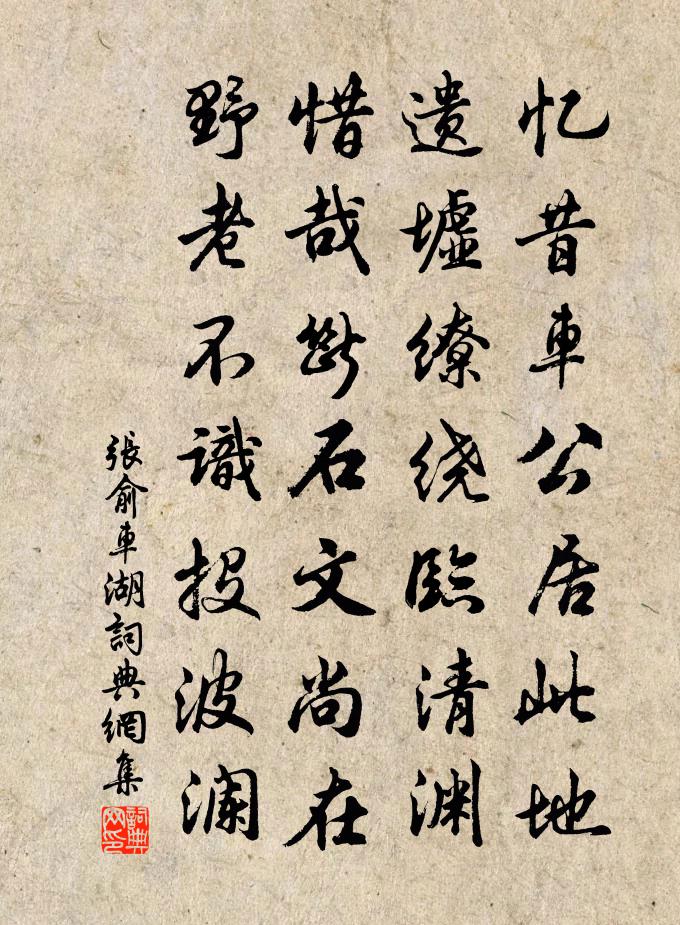 忆昔車公居此地
遗墟缭绕臨清渊
惜哉斷石文尚在
野老不識投波澜
張俞車湖詞典網集
詞典网印